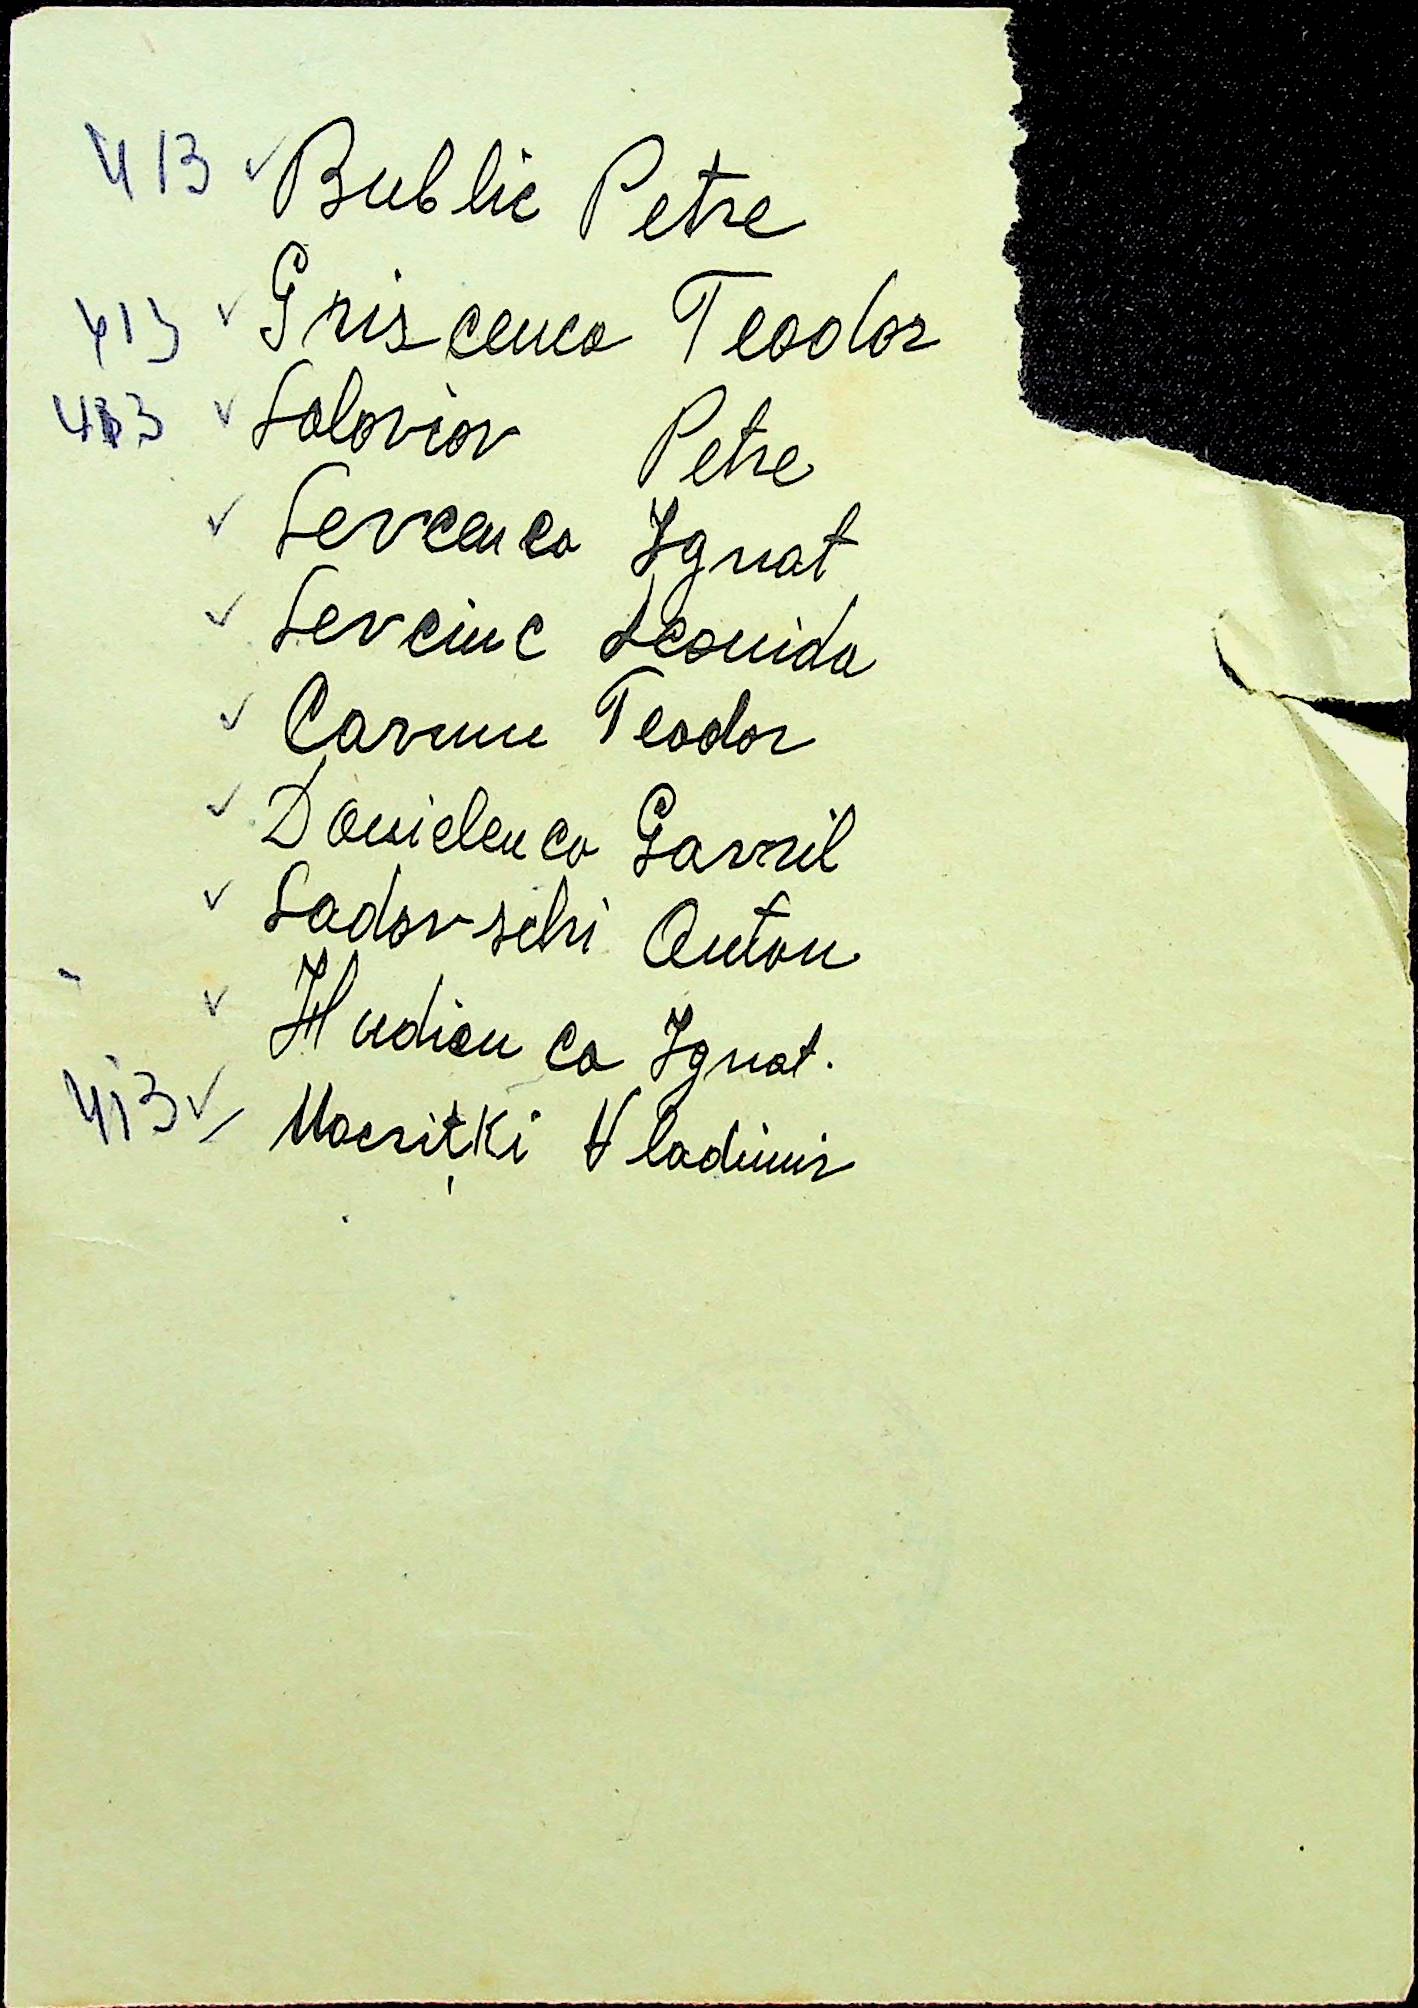 413 ✓ Bublic Petre
413 ✓ Griscenco Teodor
413 ✓ Soloviov Petre
✓ Sevcenco Ignat
✓ Sevciuc Leonida
✓ Teodor
✓ Danielenco Gavril
✓ Sadovschi Anton
✓ Hudienco Ignat.
413 ✓ Mocrițki Vladimir